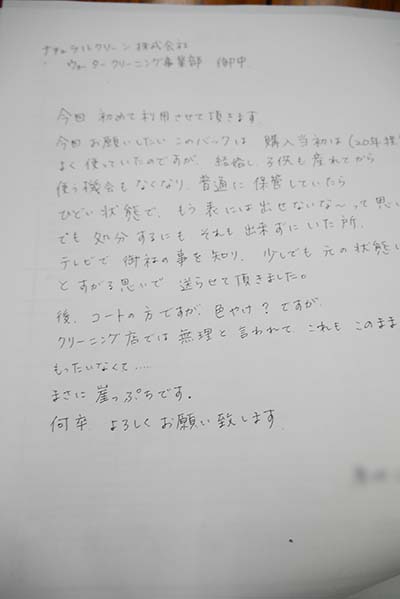 ナチュラルクリーン株式会社
ウォータークリーニング事業部 御中
今回 初めて利用させて頂きます
今回お願いしたいこのバックは 購入当初は(20年
よく使っていたのですが、結婚し、子供も産れてから
使う機会もなくなり、普通に保管していたら
ひどい状態で、もう表には出せないな〜って思い
でも 処分するにも それも出来ずにいた所、
テレビで御社の事を知り、少しでも元の状態に
とすがる思いで 送らせて頂きました。
後、コートの方ですが、色やけ?ですが
クリーニング店では無理と言われて、これも このまま
もったいなくて.....
まさに崖っぷちです.
何卒 よろしくお願い致します